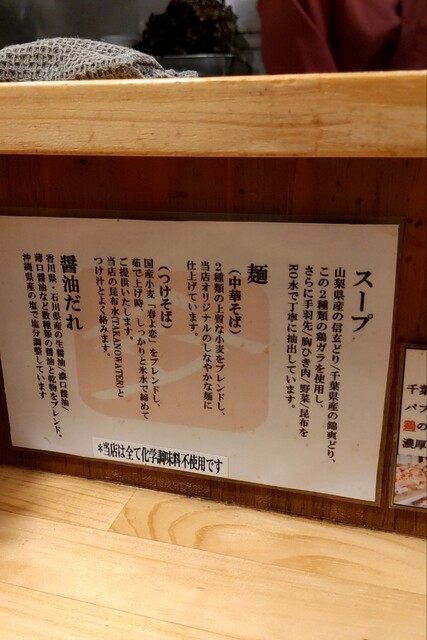 スープ
山梨県産の信玄どり/千葉県産の錦爽どり、
この2種類の鶏ガラを使用し、
さらに手羽先/胸ひき肉/野菜/昆布を
RO水で丁寧に抽出しています。
麺
(中華そば)
2種類の上質な小麦をブレンドし、
当店オリジナルのしなやかな麺に
仕上げています。
(つけそば)
国産小麦「春よ恋」をブレンドし、
茹で上げ時、しっかりと氷水で締めて
ご提供いたします。
当店の昆布水(TAKANOWATER)と
つけ汁とよく絡みます。
醤油だれ
香川県・石川県産の生醤油/濃口醤油/
薄口醤油など数種類の醤油と乾物をブレンド。
沖縄県産の塩で塩分調整しています
*当店は全て化学調味料不使用です
千葉
パブ
鶏の
濃厚